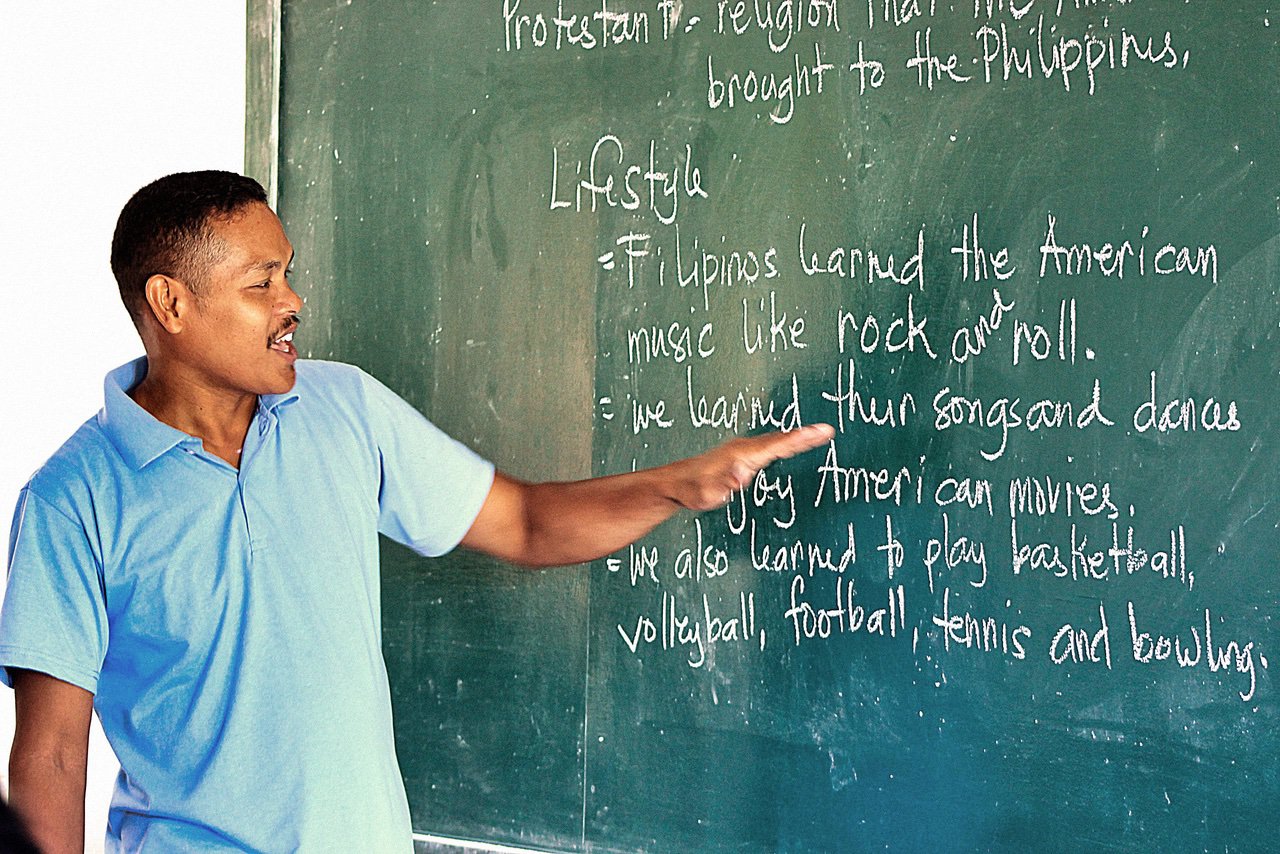 Protestant = religion that the
brought to the Philippines.
Lifestyle
= Filipinos learned the American
music like rock and roll.
= we learned their songs and dances
American movies.
= we also learned to play basketball,
volleyball, football, tennis and bowling.